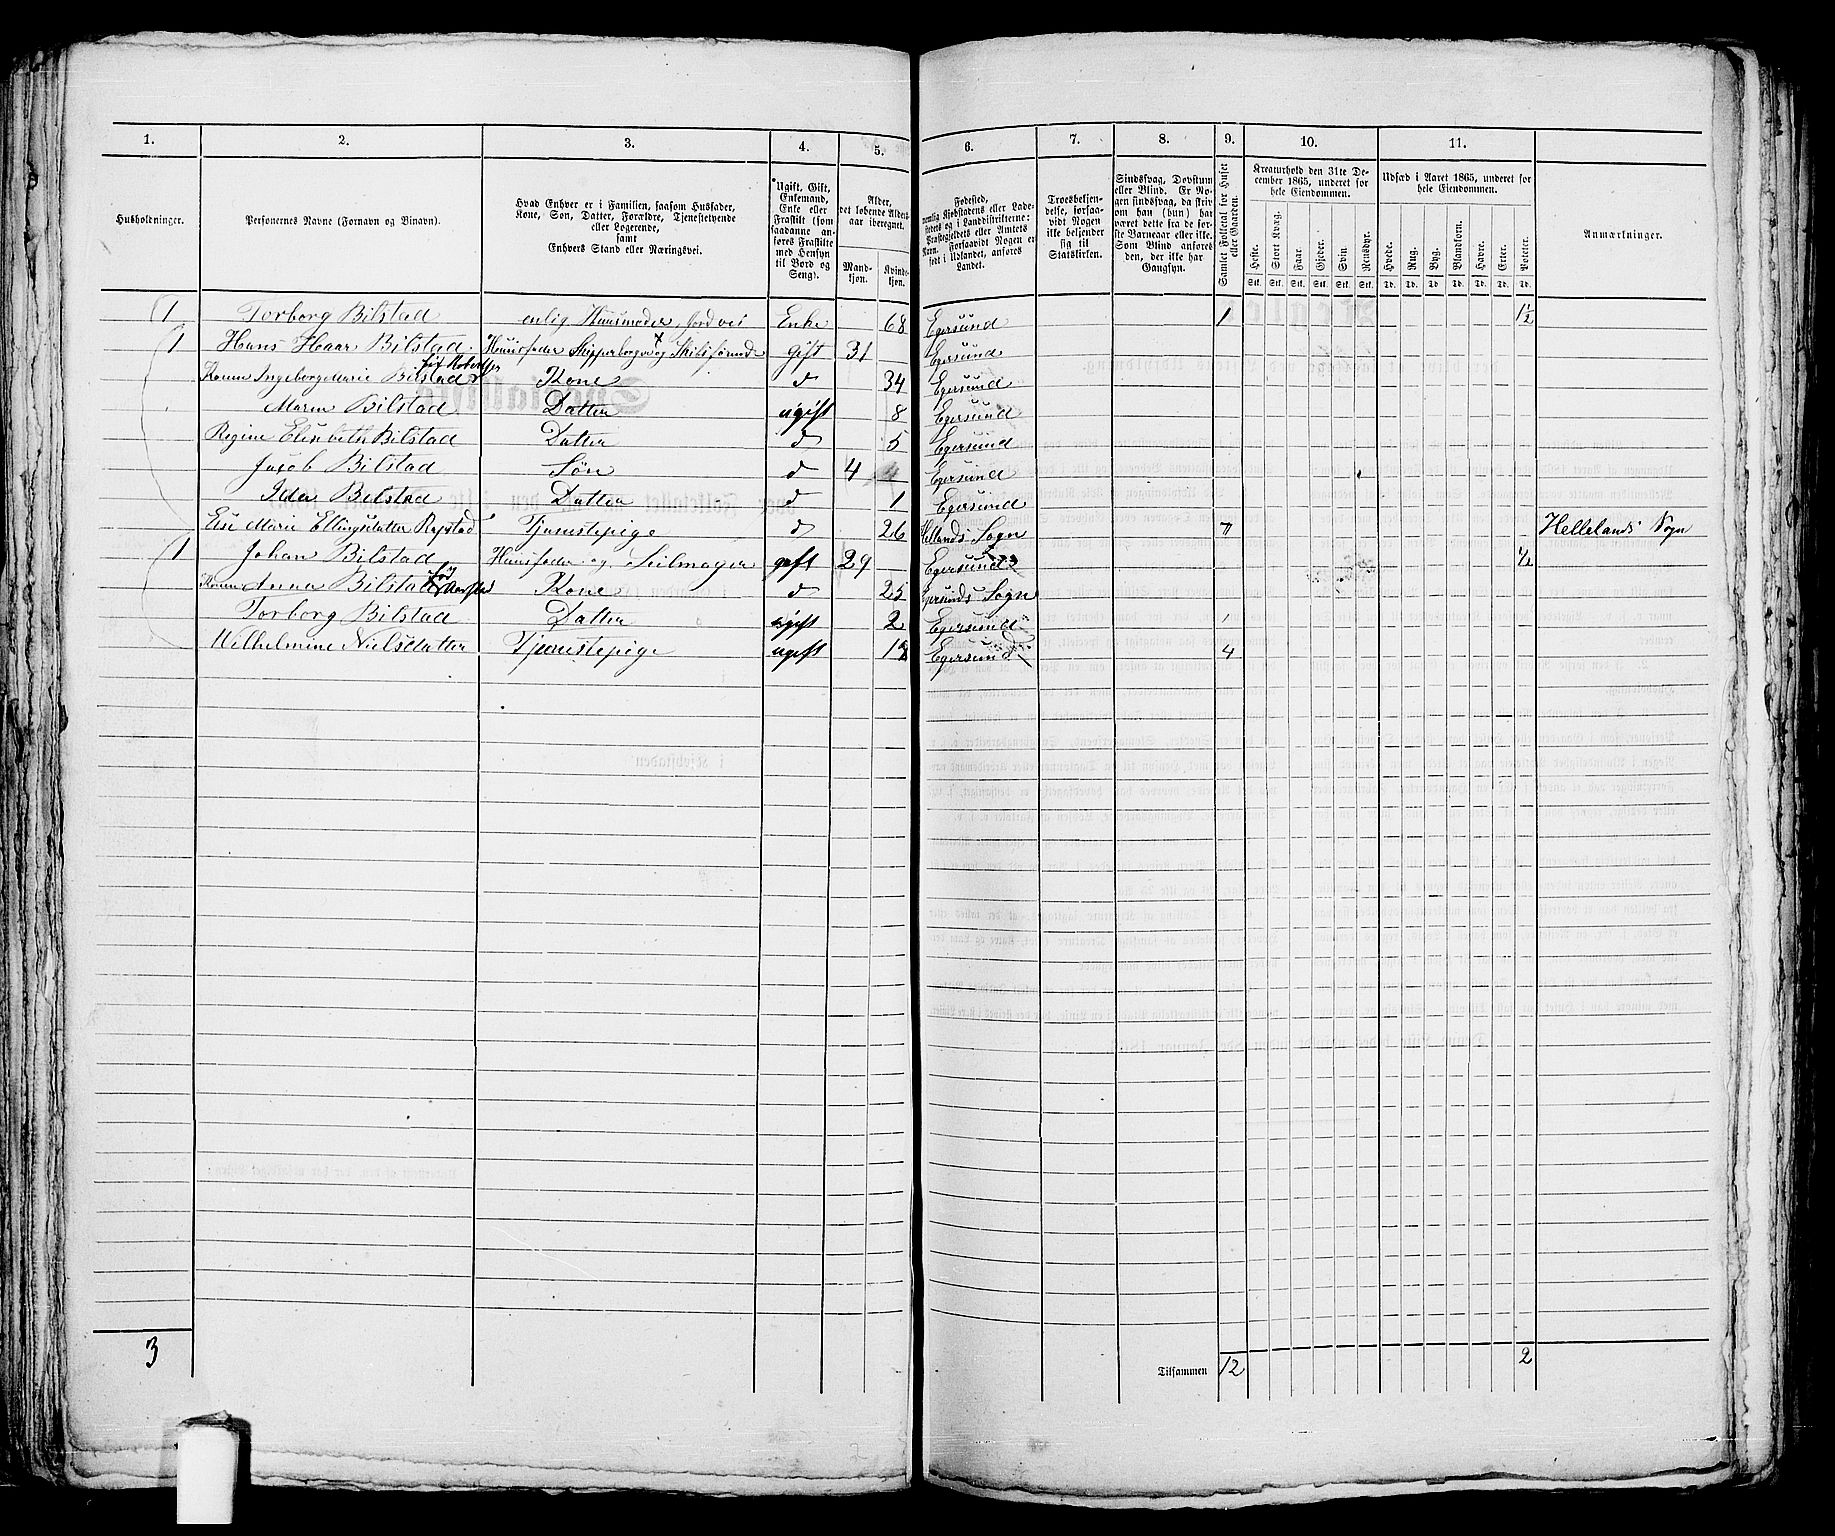 1. 2. 3. 4. 5. 6. 7. 8. 9. 10. 11.
Husholdninger.
Personernes Navne (Fornavn og Binavn).
Hvad Enhver er i Familien, saasom Husfader,
Kone, Søn, Datter, Forældre, Tjenestetyende
eller Logerende,
samt
Enhvers Stand eller Næringsvei.
Ugift, Gift,
Enkemand,
Enke eller
Fraskilt (som
saadanne an-
føres Fraskilte
med Hensyn
til Bord og
Seng).
Alder,
det løbende Alders-
aar iberegnet.
Mand-
kjøn.
Kvinde-
kjøn.
Fødested,
nemlig Kjøbstadens eller Lade-
stedets og i Landdistrikterne:
Præstegjeldets eller Amtets
Navn. Forsaavidt Nogen er
født i Udlandet, anføres
Landet.
Troesbekjen-
delse, forsaa-
vidt Nogen
ikke bekjender
sig til
Statskirken.
Sindssvag, Døvstum
eller Blind. Er No-
gen sindssvag, da skriv
om han (hun) har
været dette fra de før-
ste Barneaar eller ikke.
Som Blind anføres
den, der ikke har
Gangsyn.
Samlet Folketal for Huset
eller Gaarden.
Kreaturhold den 31te De-
cember 1865, underet for
hele Eiendommen.
Heste. Stort Kvæg. Faar. Gjeder. Svin. Rensdyr.
Stk. Stk. Stk. Stk. Stk. Stk.
Udsæd i Aaret 1865, underet for
hele Eiendommen.
Hvede. Rug. Byg. Blandkorn. Havre. Erter. Poteter.
Td. Td. Td. Td. Td. Td. Td.
Anmærkninger.
1 Torborg Bilstad enlig Huusmoder Jordvei Enke 68 Egersund 1 1½
1 Hans Haar Bilstad Huusfader Skipperborger og Skibsfører gift 31 Egersund
Konen Ingeborg Marie Bilstad Kone d 34 Egersund
Maren Bilstad Datter ugift 8 Egersund
Regine Elisabeth Bilstad Datter d 5 Egersund
Jacob Bilstad Søn d 4 Egersund
Ida Bilstad Datter d 1 Egersund
Else Marie Ellingsdatter Tjenestepige d 26 Hellands Sogn 7 Hellelands Sogn
1 Johan Bilstad Huusfader og Seilmager gift 29 Egersund ½
Konen Anna Bilstad Kone d 25 Egersunds Sogn
Torborg Bilstad Datter ugift 2 Egersund
Wilhelmine Nielsdatter Tjenestepige ugift Egersund 4
3 Tilsammen 12 2